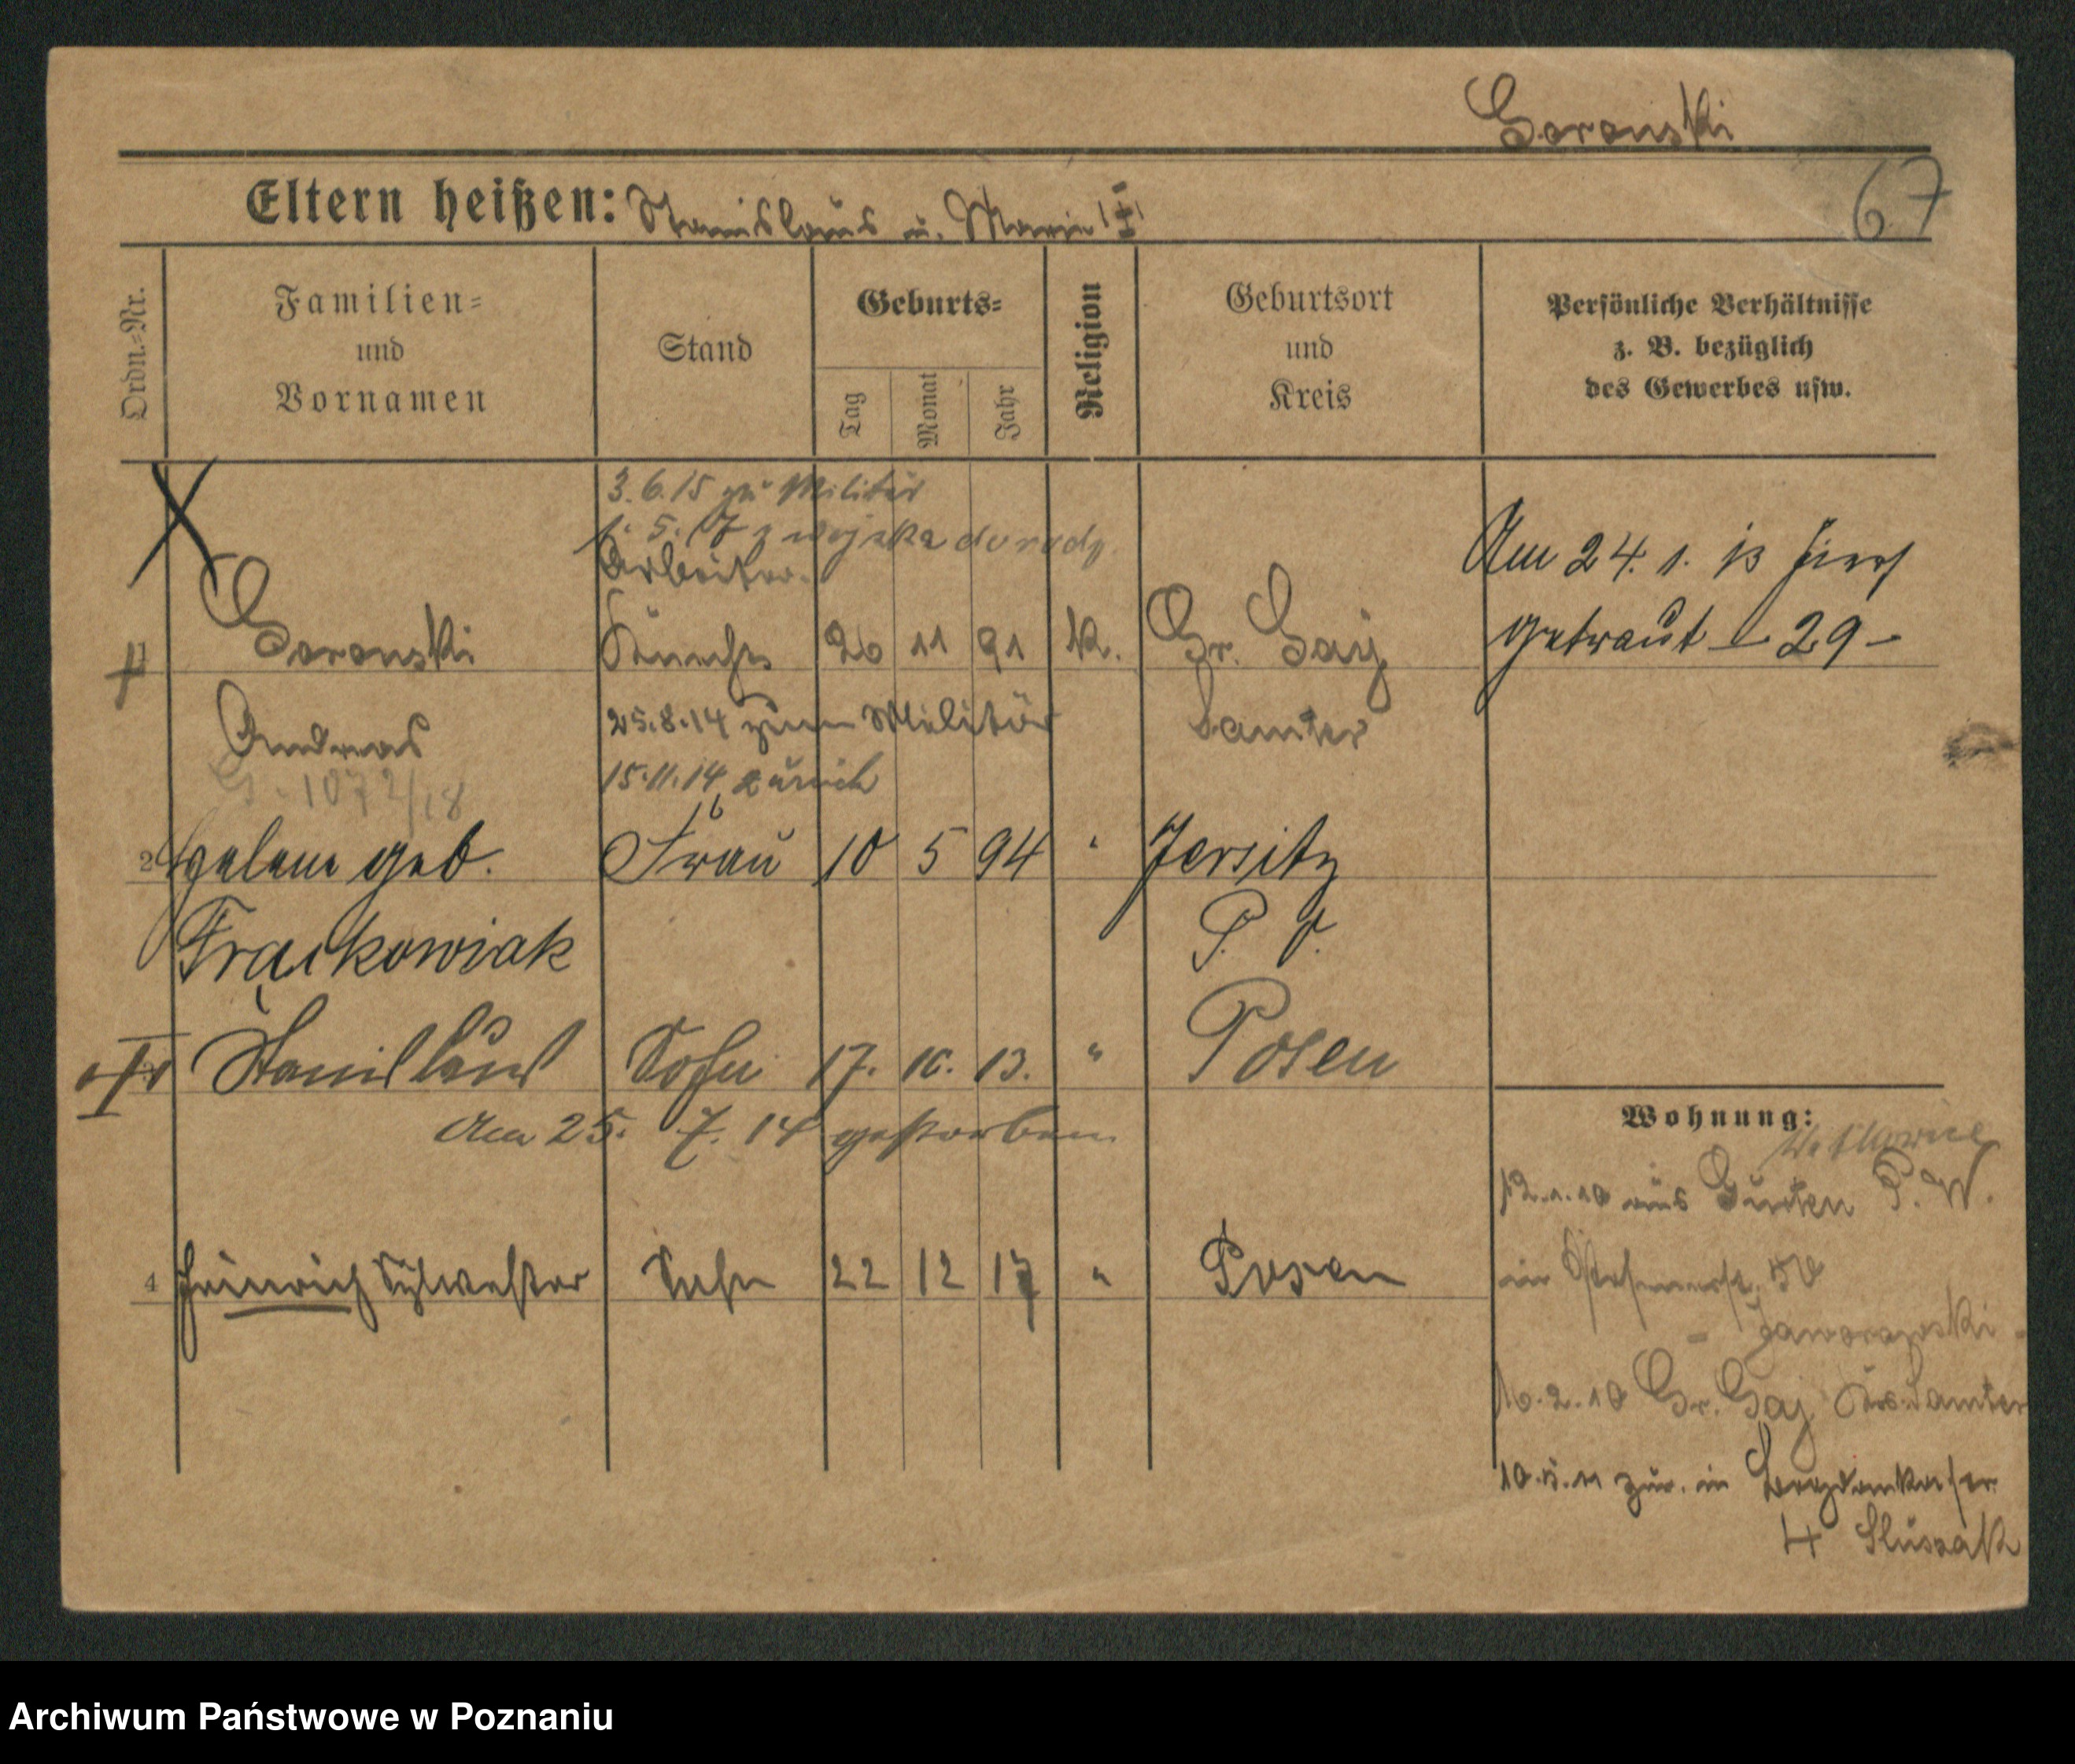 Goronski
Eltern heißen: Stanislaus u. Maria
67
Ordn.-Nr.
Familien-
und
Vornamen
Stand
Geburts-
Tag
Monat
Jahr
Religion
Geburtsort
und
Kreis
Persönliche Verhältnisse
z. B. bezüglich
des Gewerbes usw.
3.6.15 zu Militär
z wojska
Arbeiter
1 Goronski Knecht 20 11 91 K. Gr. Gaj
Am 24. 1. 13 hier
getraut - 29 -
Andreas 25.8.14 zum Militär Samter
G. 1072/18 15.11.14 zurück
2 Helene geb. Frau 10 5 94 " Jersitz
Frąckowiak P. O.
Stanislaus Sohn 17. 10. 13. " Posen
Am 25. 7. 14 gestorben
4 Heinrich Sylvester Sohn 22 12 17 " Posen
Wohnung:
12.1.10 aus Gurten P. W.
in 50
- Jaworowski -
16.2.10 Gr. Gaj Krs. Samter
10.5.11 zur. in
4 Sluszak
Archiwum Państwowe w Poznaniu